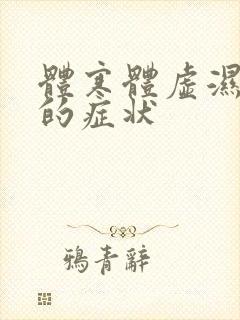 體寒體虛濕
的症状
鴉青辭